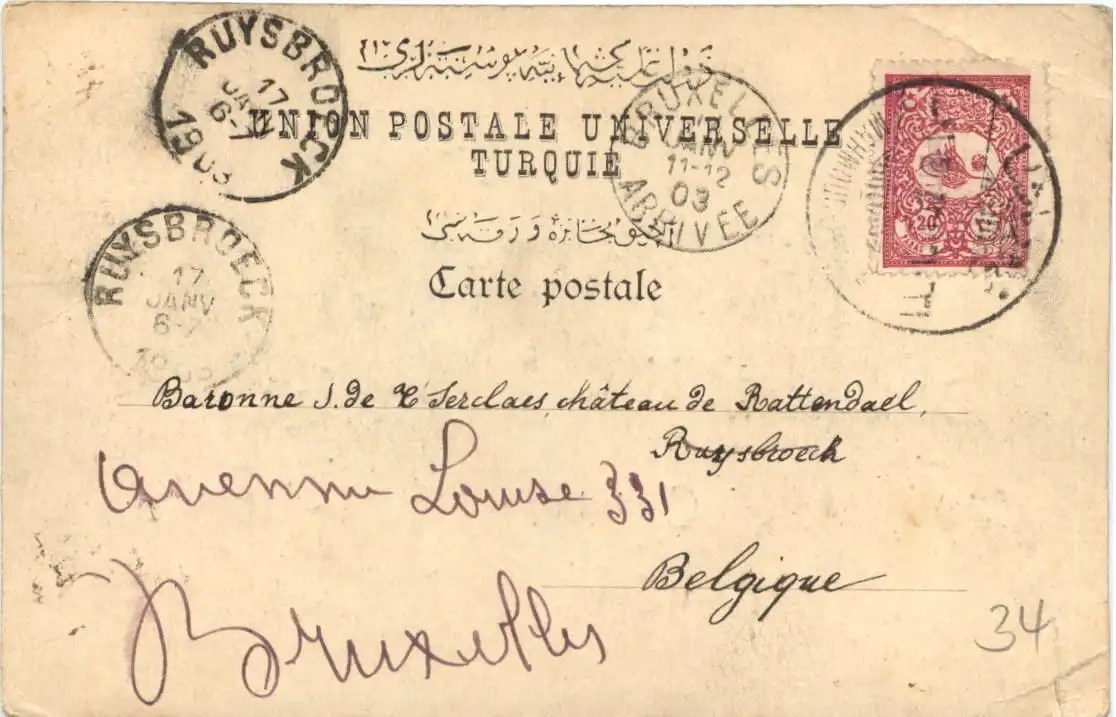 RUYSBROECK
17
JANV
6-7
1903
UNION POSTALE UNIVERSELLE
TURQUIE
BRUXELLES
JANV
11-12
03
ARRIVÉE
20
Carte postale
RUYSBROECK
17
JANV
6-7
1903
Baronne J. de T'Serclaes, château de Rattendael,
Ruysbroeck
Avenue Louise 331
Belgique
Bruxelles
34